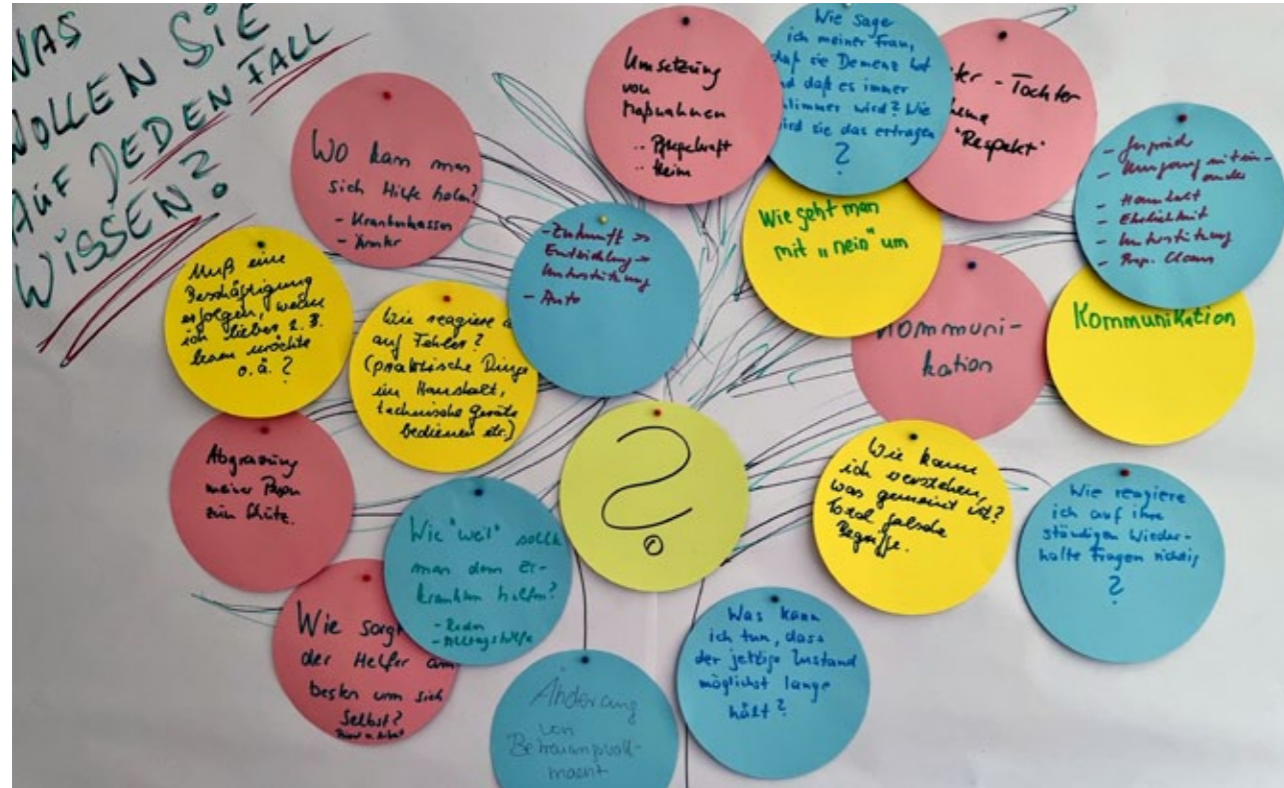 WAS
WOLLEN SIE
AUF JEDEN FALL
WISSEN?
Wo kann man
sich Hilfe holen?
- Krankenkassen
- Ämter
Umsetzung
von
Maßnahmen
.. Pflegekraft
.. Heim
Wie sage
ich meiner Frau,
daß sie Demenz hat
und daß es immer
schlimmer wird? Wie
wird sie das ertragen
?
ter - Tochter
hema
"Respekt"
- Gespräch
- Umgang mitein-
ander
- Haushalt
- Ehrlichkeit
- Unterstützung
Muß eine
Beschäftigung
erfolgen, wenn
ich lieber z. B.
lesen möchte
o. ä. ?
Wie reagiere
auf Fehler?
(praktische Dinge
im Haushalt,
technische Geräte
bedienen etc.)
- Zukunft →
Entwicklung →
Unterstützung
- Auto
Wie geht man
mit "nein" um
Kommuni-
kation
Kommunikation
Abgrenzung
meiner Person
zum Schutz.
Wie "weit" sollte
man dem Er-
krankten helfen?
- Reden
- Alltagshilfe
?
Wie kann
ich verstehen,
was gemeint ist?
Total falsche
Begriffe.
Wie reagiere
ich auf ihre
ständigen Wieder-
holte Fragen richtig
?
Wie sorgt
der Helfer am
besten um sich
selbst?
Was kann
ich tun, dass
der jetzige Zustand
möglichst lange
hält?
Änderung
von
Betreuungsvoll-
macht